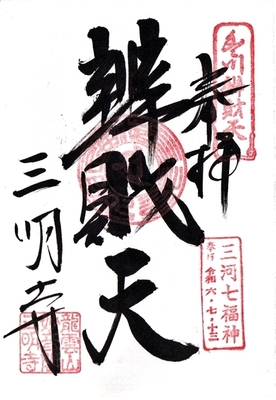 奉拝
豊川辨財天
三河七福神
奉拝 令和 六・七・十三
辨財天
三明寺
龍雲山
三明寺